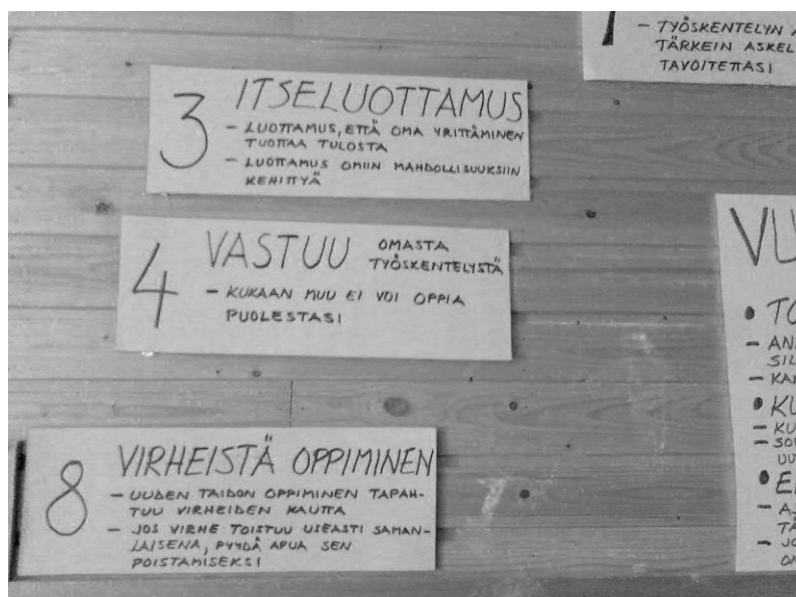 - TYÖSKENTELYN
TÄRKEIN ASKEL
TAVOITETTASI
3 ITSELUOTTAMUS
- LUOTTAMUS, ETTÄ OMA YRITTÄMINEN
TUOTTAA TULOSTA
- LUOTTAMUS OMIIN MAHDOLLISUUKSIIN
KEHITTYÄ
4 VASTUU OMASTA
TYÖSKENTELYSTÄ
- KUKAAN MUU EI VOI OPPIA
PUOLESTASI
8 VIRHEISTÄ OPPIMINEN
- UUDEN TAIDON OPPIMINEN TAPAH-
TUU VIRHEIDEN KAUTTA
- JOS VIRHE TOISTUU USEASTI SAMAN-
LAISENA, PYYDÄ APUA SEN
POISTAMISEKSI